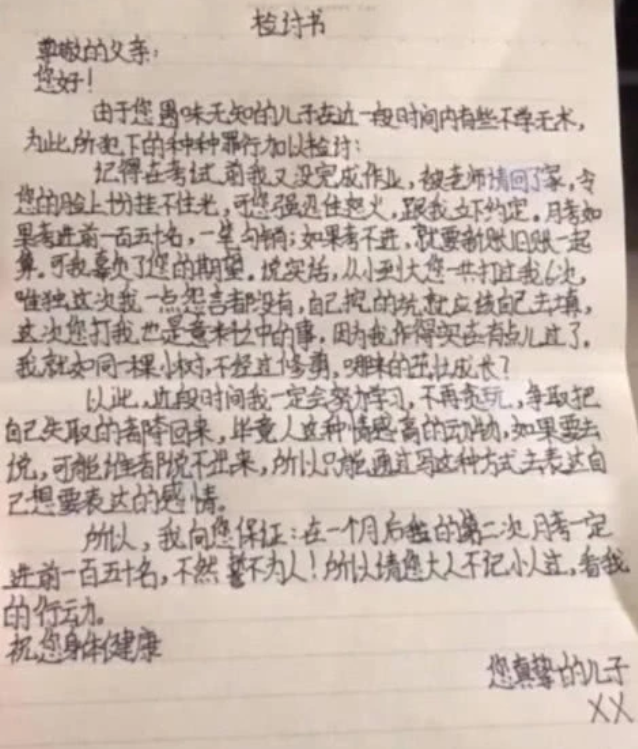 检讨书
尊敬的父亲：
您好！
由于您愚味无知的儿子在近一段时间内有些不学无术，
为此所犯下的种种罪行加以检讨：
记得在考试前我又没完成作业，被老师请回了家，令
您的脸上份挂不住光，可您强忍住怒火，跟我立下约定。月考如
果考进前一百五十名，一笔勾销；如果考不进，就要新账旧账一起
算。可我辜负了您的期望。说实话，从小到大您一共打过我6次，
唯独这次我一点怨言都没有，自己挖的坑就应该自己去填，
这次您打我也是意料之中的事，因为我作得实在有点儿过了。
我就如同一棵小树，不经过修剪，哪来的茁壮成长？
以此，近段时间我一定会努力学习，不再贪玩，争取把
自己失取的都夺回来，毕竟人这种情感高的动物，如果要去
说，可能谁都说不出来，所以只能通过写这种方式去表达自
己想要表达的感情。
所以，我向您保证：在一个月后的第二次月考一定
进前一百五十名，不然誓不为人！所以请您大人不记小人过，看我
的行动。
祝您身体健康
您真挚的儿子
XX